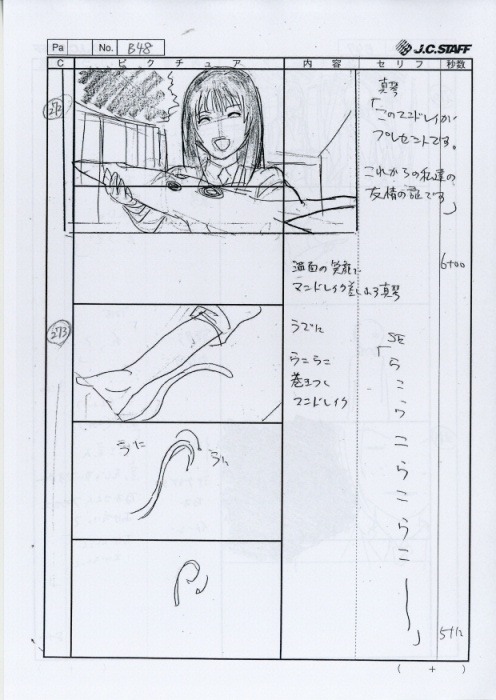 Pa No. B48
J.C.STAFF
C ピクチュア 内容 セリフ 秒数
272
真琴
「このマンドレイクが
プレゼントです。
これからの私達の
友情の証です」
満面の笑顔で
6+00
273
うでに
うにうに
巻きつく
マンドレイク
SE
「うにうにうにうにー」
うに うに
5+12
( + )